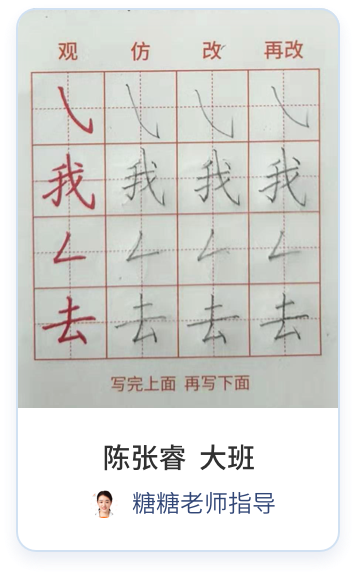 观 仿 改 再改
㇂ ㇂ ㇂ ㇂
我 我 我 我
𠃋 𠃋 𠃋 𠃋
去 去 去 去
写完上面 再写下面
陈张睿 大班
糖糖老师指导